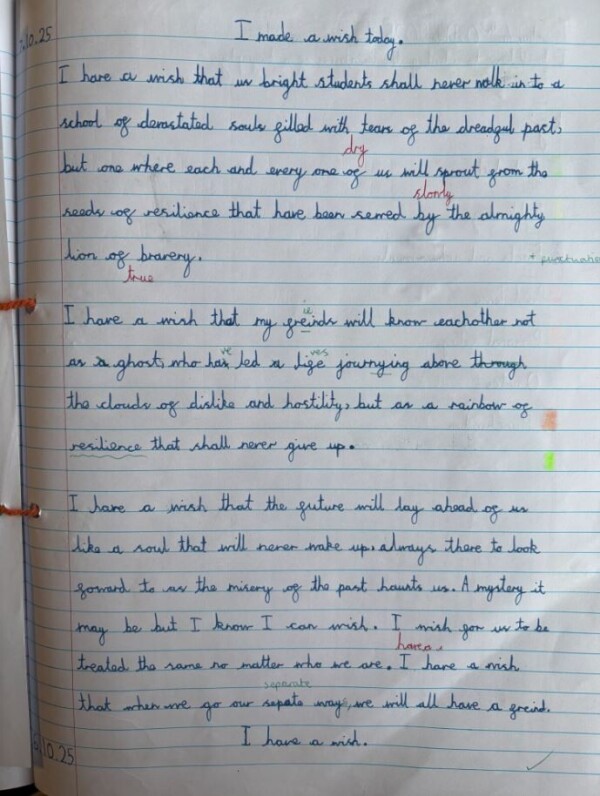 .10.25
I made a wish today.
I have a wish that us bright students shall never walk in to a
school of devastated souls filled with tears of the dreadful past,
dry
but one where each and every one of us will sprout from the
slowly
seeds of resilience that have been served by the almighty
lion of bravery.
+ punctuatio
true
ie
I have a wish that my freinds will know eachother not
ve ves
as a ghost, who has led a life journying above through
the clouds of dislike and hostility, but as a rainbow of
resilience that shall never give up.
I have a wish that the future will lay ahead of us
like a soul that will never wake up, always there to look
foward to as the misery of the past haunts us. A mystery it
may be but I know I can wish. I wish for us to be
have a
treated the same no matter who we are. I have a wish
separate
that when we go our sepate ways, we will all have a freind.
I have a wish.
.10.25